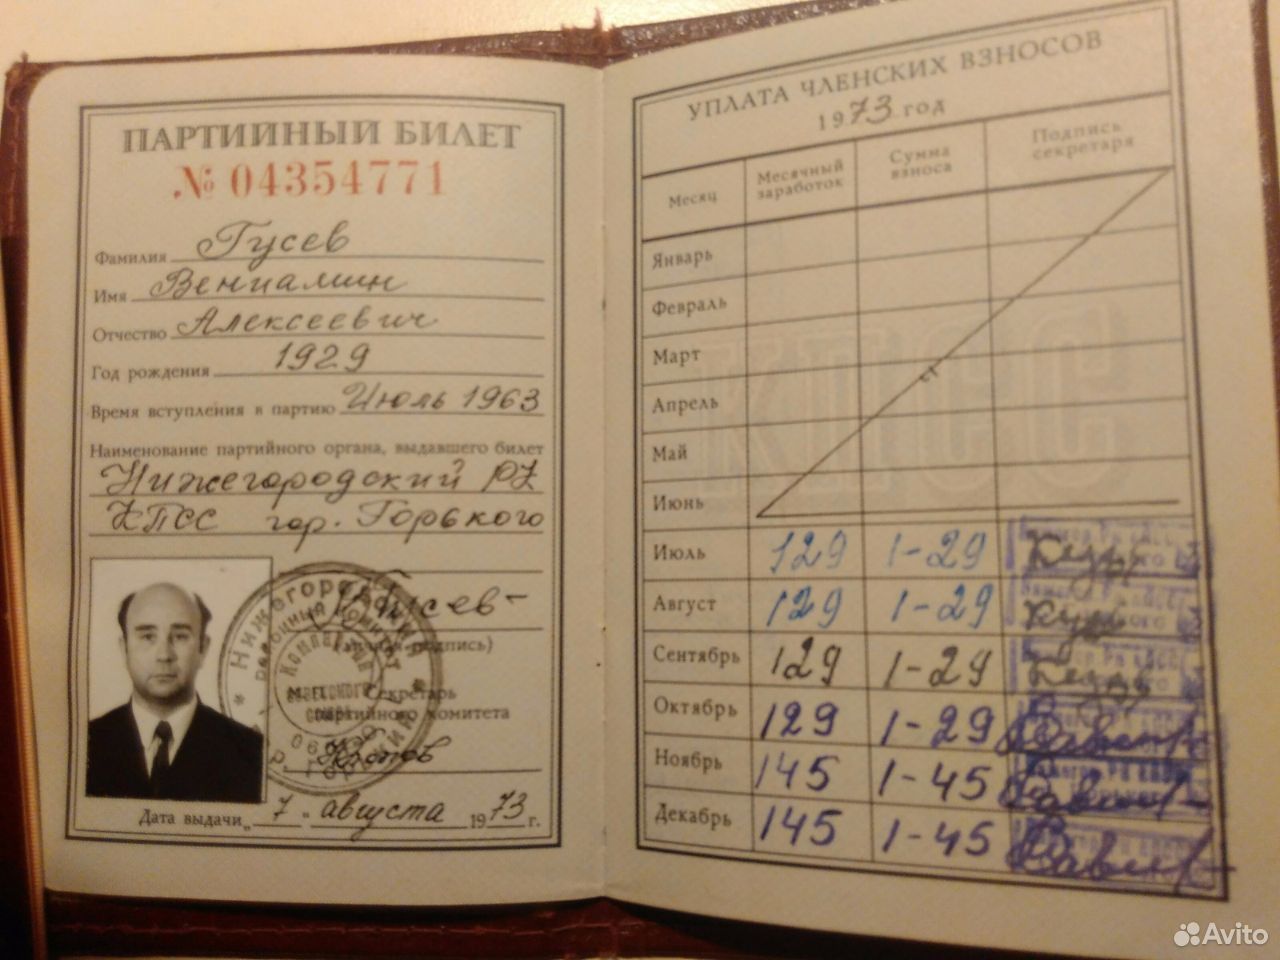 ПАРТИЙНЫЙ БИЛЕТ
№ 04354771
Фамилия Гусев
Имя Вениамин
Отчество Алексеевич
Год рождения 1929
Время вступления в партию Июль 1963
Наименование партийного органа, выдавшего билет
Нижегородский РК
КПСС гор. Горького
Гусев
(личная подпись)
М. П. Секретарь
партийного комитета
Дата выдачи „7" августа 1973 г.
УПЛАТА ЧЛЕНСКИХ ВЗНОСОВ
1973 год
Месяц Месячный заработок Сумма взноса Подпись секретаря
Январь
Февраль
Март
Апрель
Май
Июнь
Июль 129 1-29
Август 129 1-29
Сентябрь 129 1-29
Октябрь 129 1-29
Ноябрь 145 1-45
Декабрь 145 1-45
КПСС
Avito